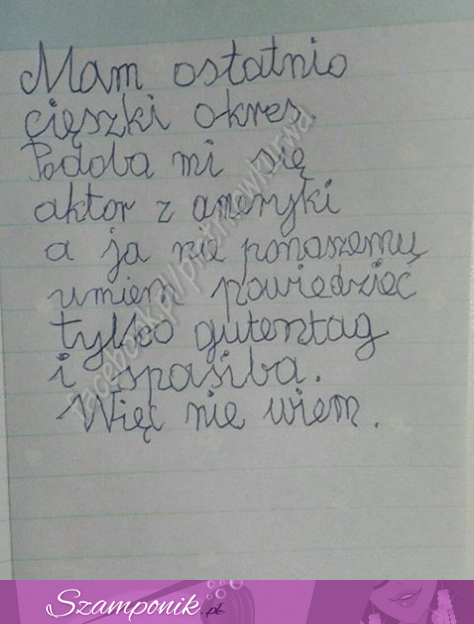 Mam ostatnio
cięszki okres.
Podoba mi się
aktor z ameryki
a ja nie ponaszemu
umiem powiedzieć
tylko gutentag
i spasiba.
Więc nie wiem.
Szamponik.pl